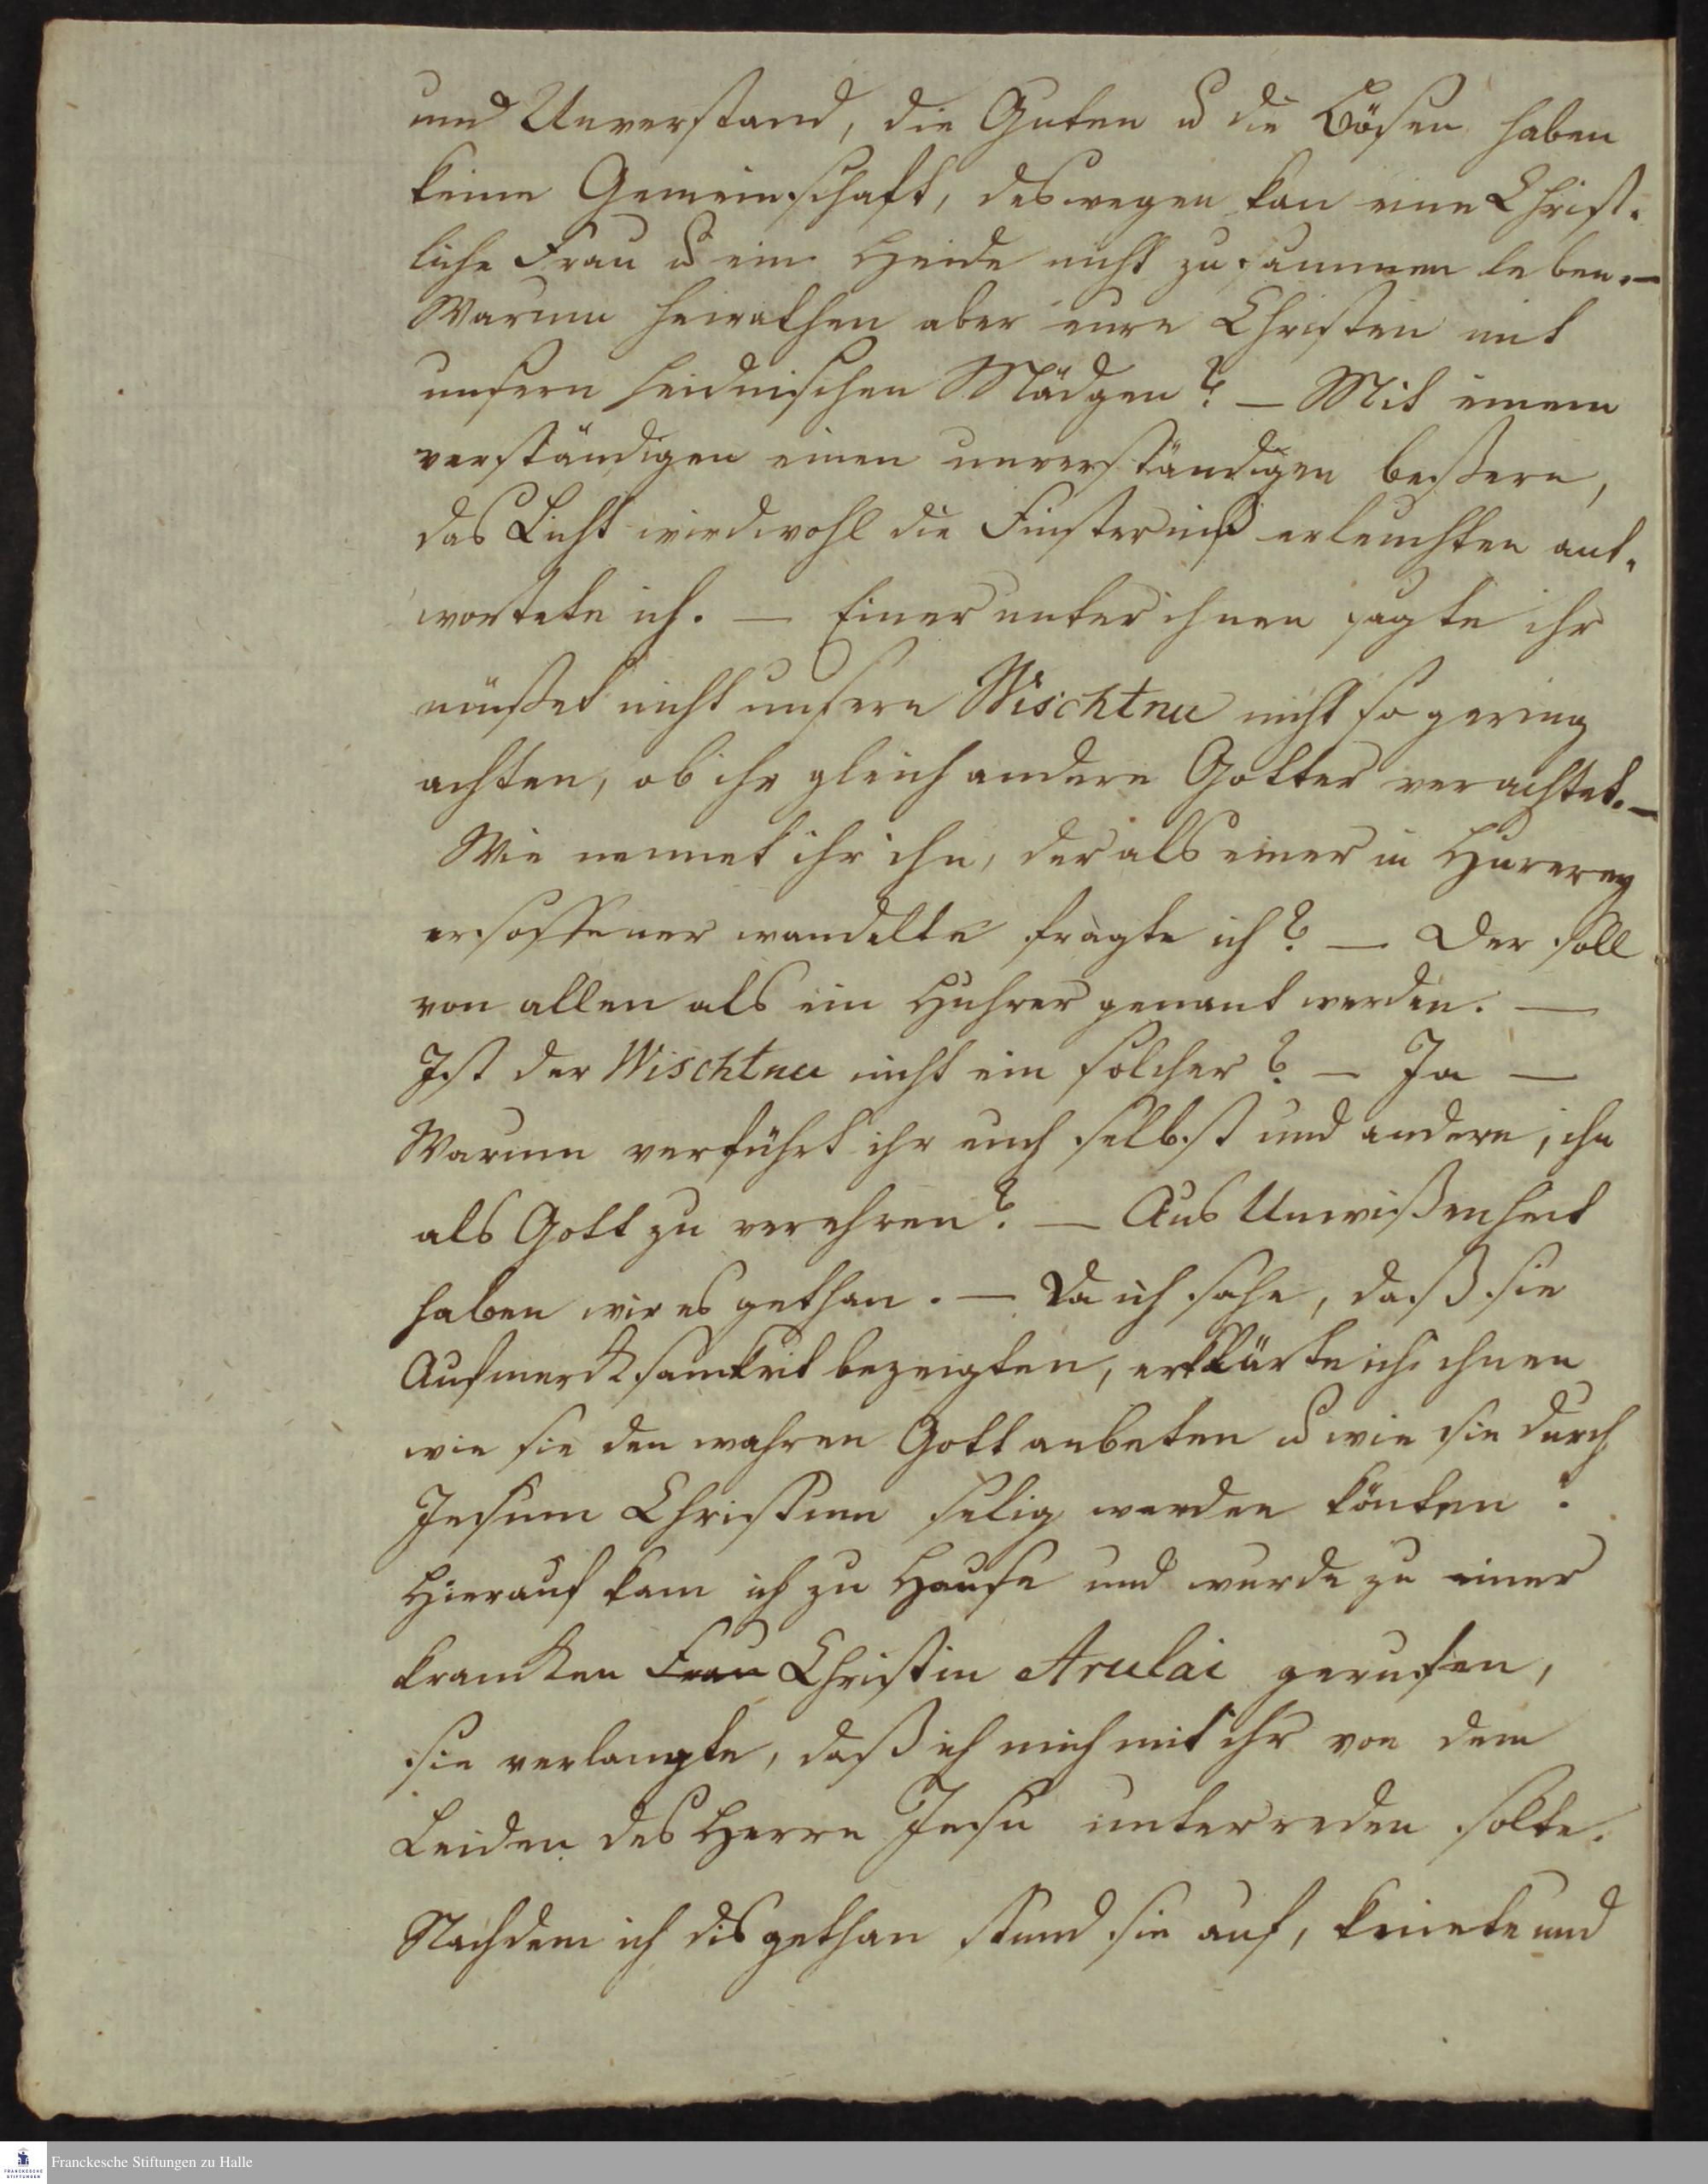 und Unverstand, die Guten u die Bösen haben
keine Gemeinschaft, deswegen kan eine Christ-
liche Frau u ein Heide nicht zusammen leben. —
Warum heirathen aber eure Christen mit
unsern heidnischen Mädgen? — Mit einem
verständigen einen unverständigen beßern,
das Licht wird wohl die Finsterniß erleuchten ant-
wortete ich. — Einer unter ihnen sagte ihr
müßet nicht unsern Wischtnu nicht so gering
achten, ob ihr gleich andere Götter verachtet. —
Wie nennet ihr ihn, der als einer in Hurerey
ersoffener wandelte fragte ich? — Der soll
von allen als ein Huhrer genant werden. —
Ist der Wischtnu nicht ein solcher? — Ja —
Warum verführt ihr euch selbst und andere, ihn
als Gott zu verehren? — Aus Unwißenheit
haben wir es gethan. — Da ich sahe, daß sie
Aufmercksamkeit bezeigten, erklärte ich ihnen
wie sie den wahren Gott anbeten u wie sie durch
Jesum Christum selig werden könten.
Hierauf kam ich zu Hause und wurde zu einer
krancken Frau Christin Arulai gerufen,
sie verlangte, daß ich mich mit ihr von dem
Leiden des Herrn Jesu unterreden solte.
Nachdem ich dis gethan stund sie auf, kniete und
Franckesche Stiftungen zu Halle